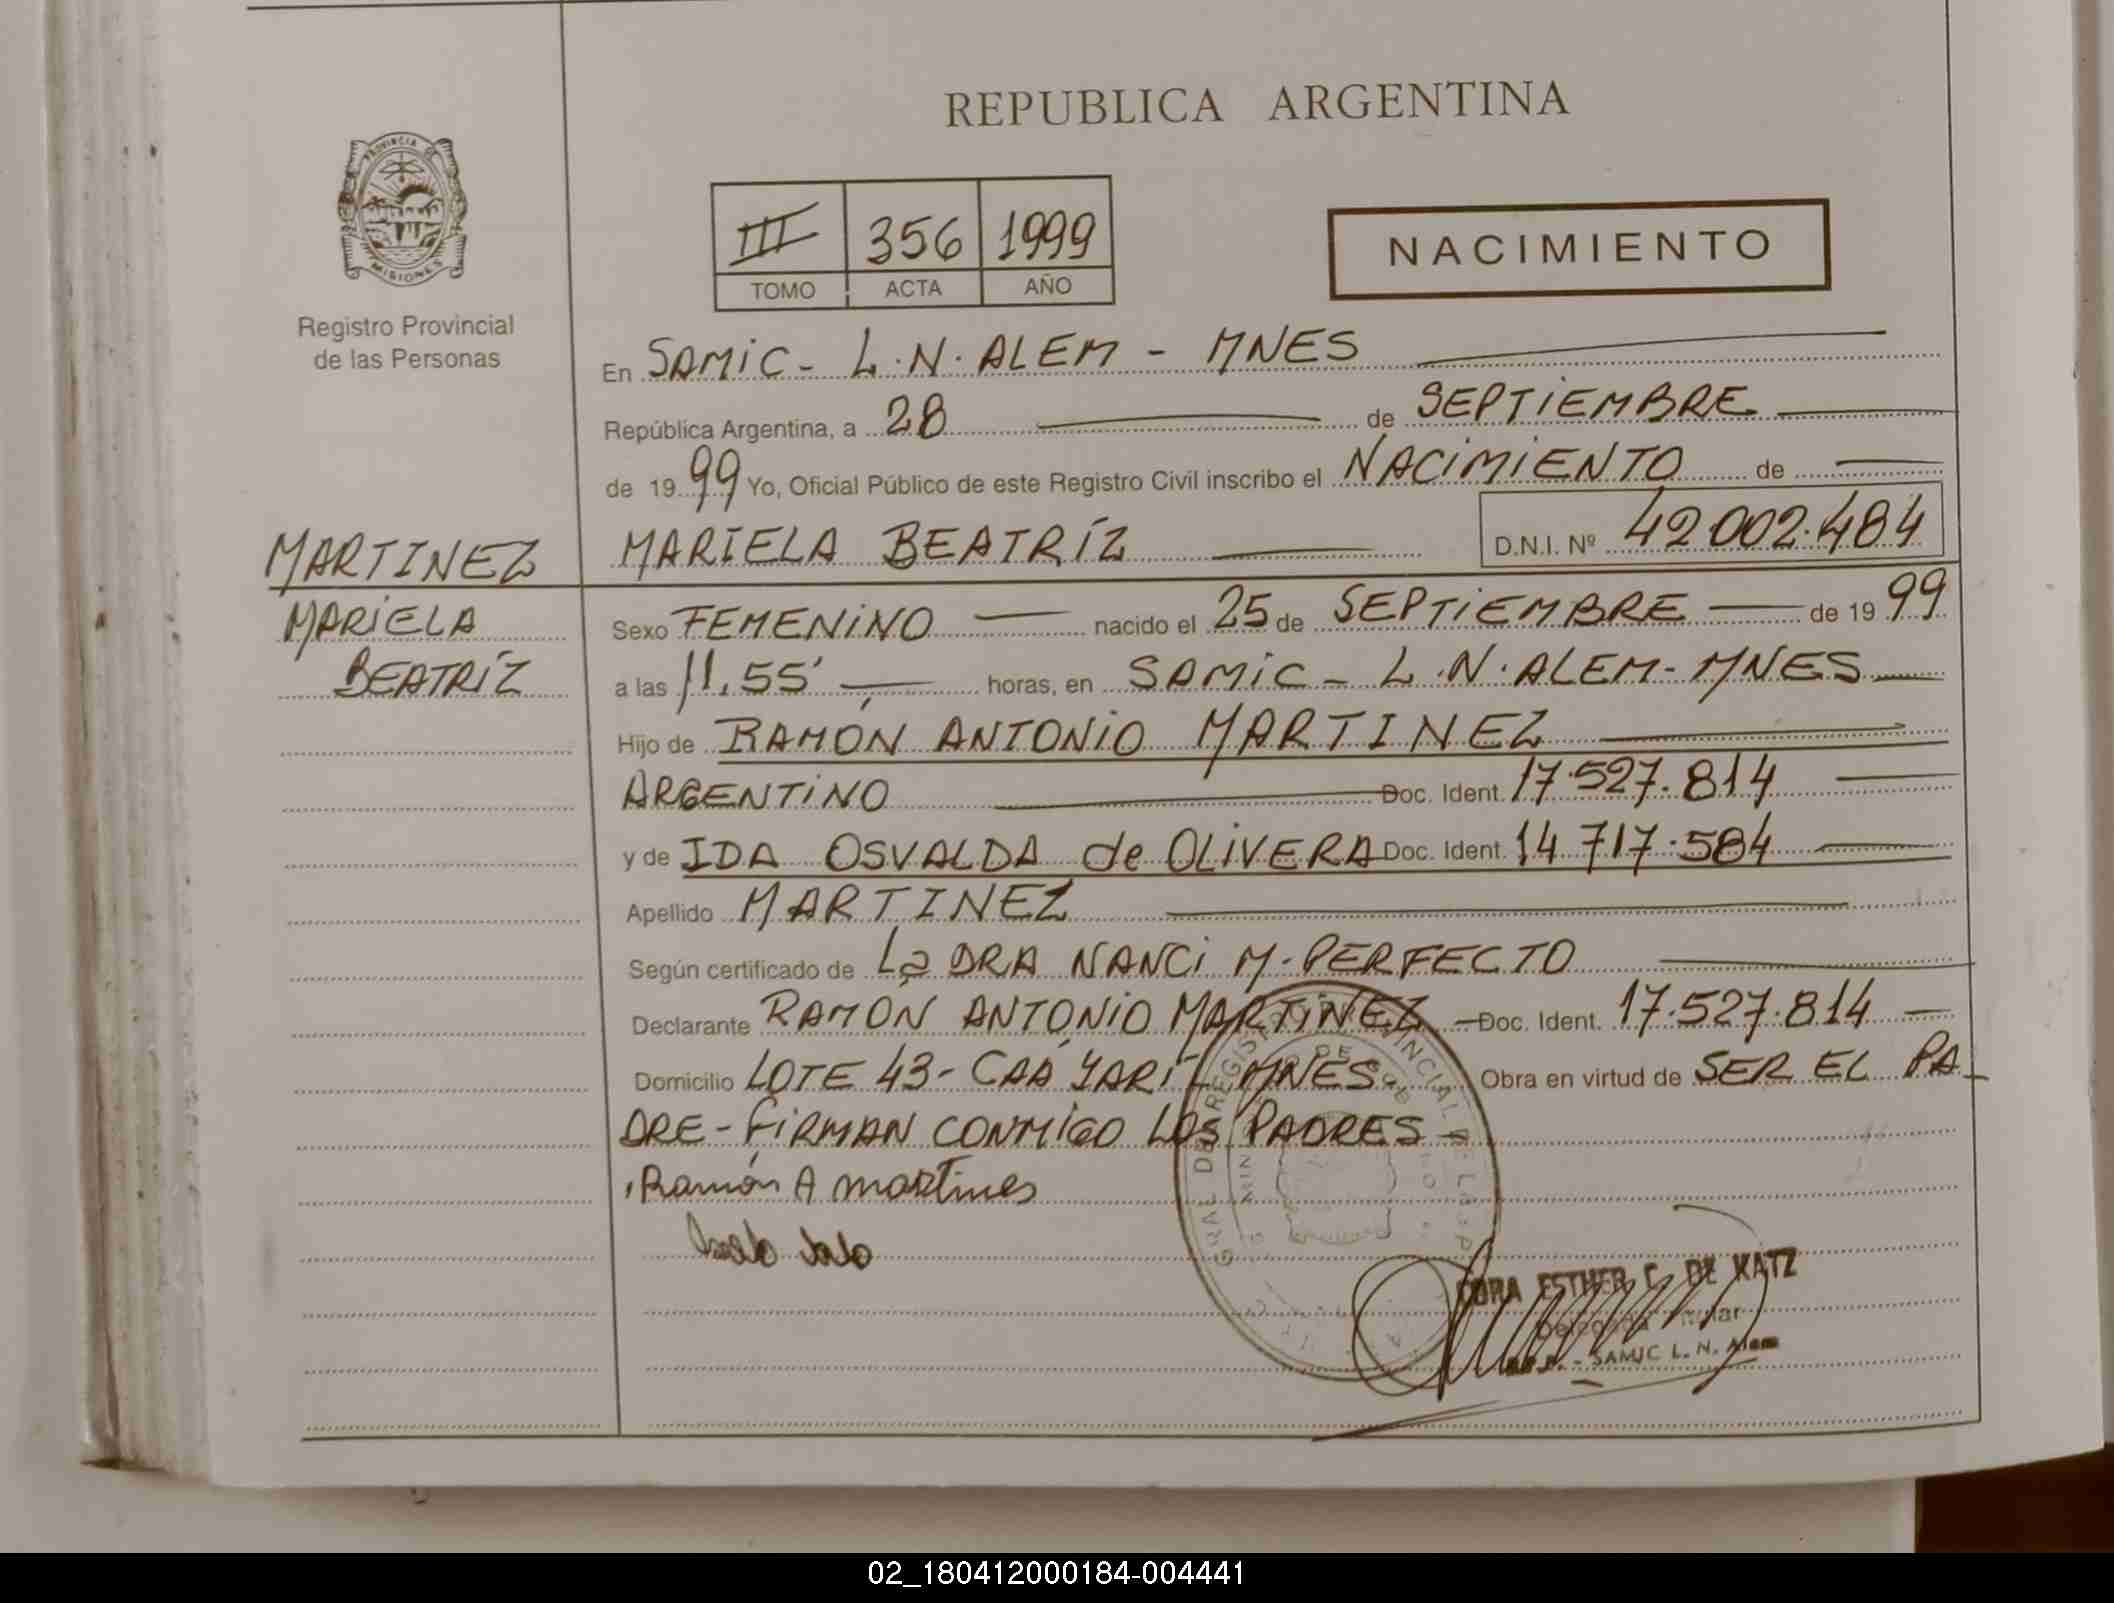 REPUBLICA ARGENTINA
PROVINCIA DE
MISIONES
Registro Provincial
de las Personas
III 356 1999
TOMO ACTA AÑO
NACIMIENTO
En SAMIC - L.N. ALEM - MNES
República Argentina, a 28 de SEPTIEMBRE
de 1999 Yo, Oficial Público de este Registro Civil inscribo el NACIMIENTO de
MARTINEZ MARIELA BEATRÍZ D.N.I. Nº 42.002.484
MARIELA
BEATRÍZ
Sexo FEMENINO nacido el 25 de SEPTIEMBRE de 1999
a las 11,55' horas, en SAMIC - L.N. ALEM - MNES
Hijo de RAMÓN ANTONIO MARTINEZ
ARGENTINO Doc. Ident. 17.527.814
y de IDA OSVALDA de OLIVERA Doc. Ident. 14.717.584
Apellido MARTINEZ
Según certificado de La DRA NANCI M. PERFECTO
Declarante RAMÓN ANTONIO MARTINEZ - Doc. Ident. 17.527.814
Domicilio LOTE 43 - CAÁ YARÍ - MNES Obra en virtud de SER EL PA-
DRE - FIRMAN CONMIGO LOS PADRES
Ramón A martines
CORA ESTHER C. DE KATZ
Delegada Titular
SAMIC L. N. Alem
02_180412000184-004441